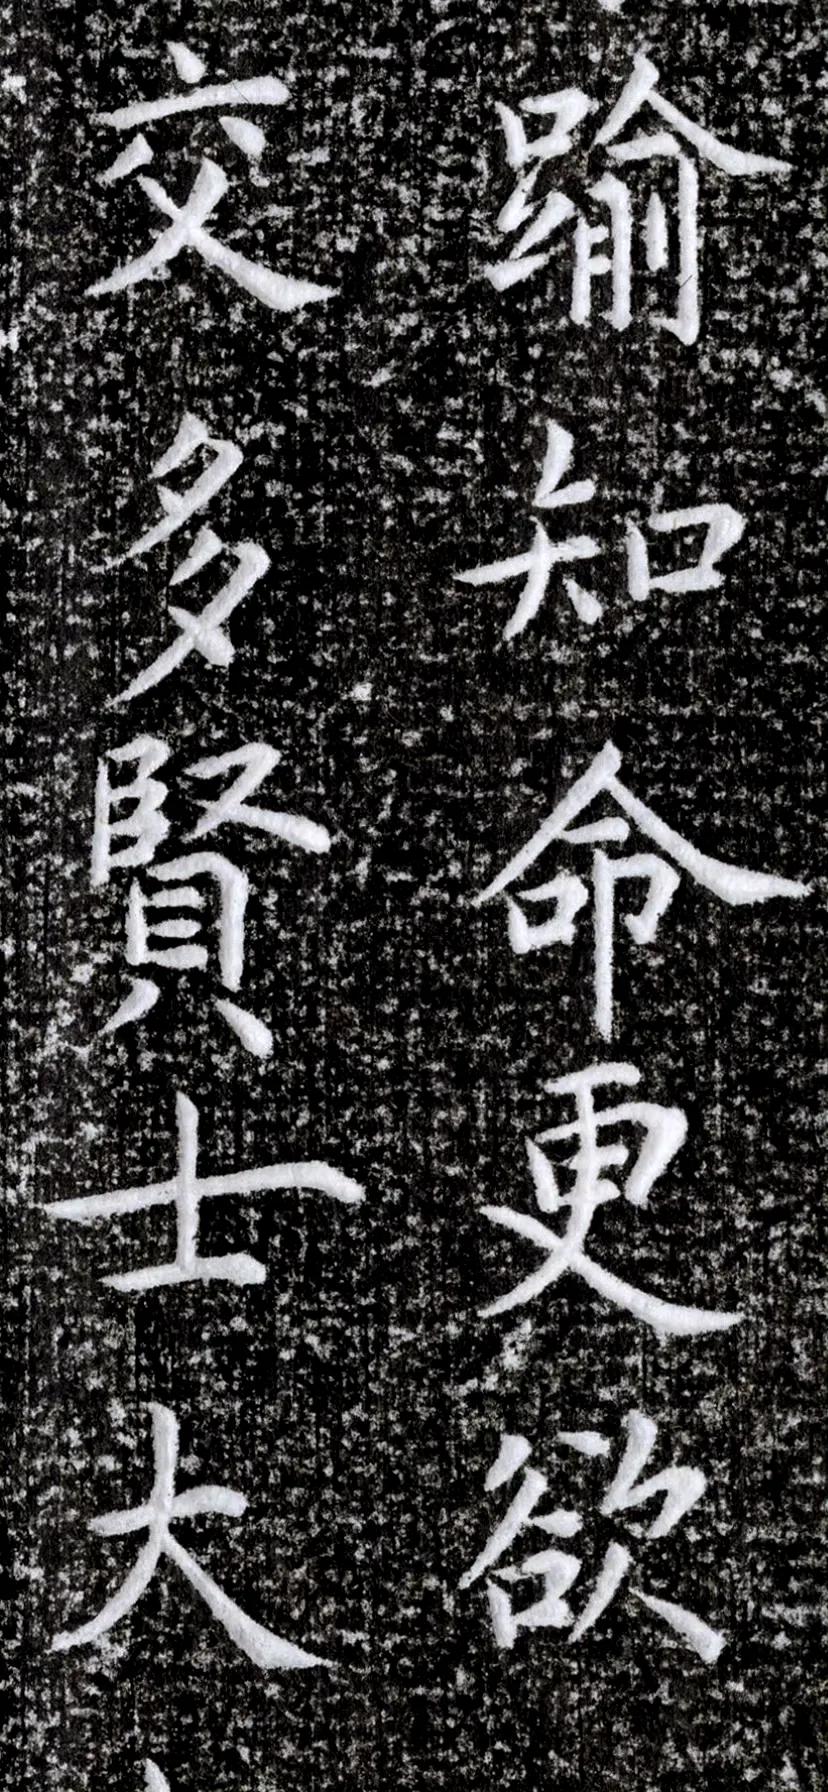 踰知命更欲
交多賢士大